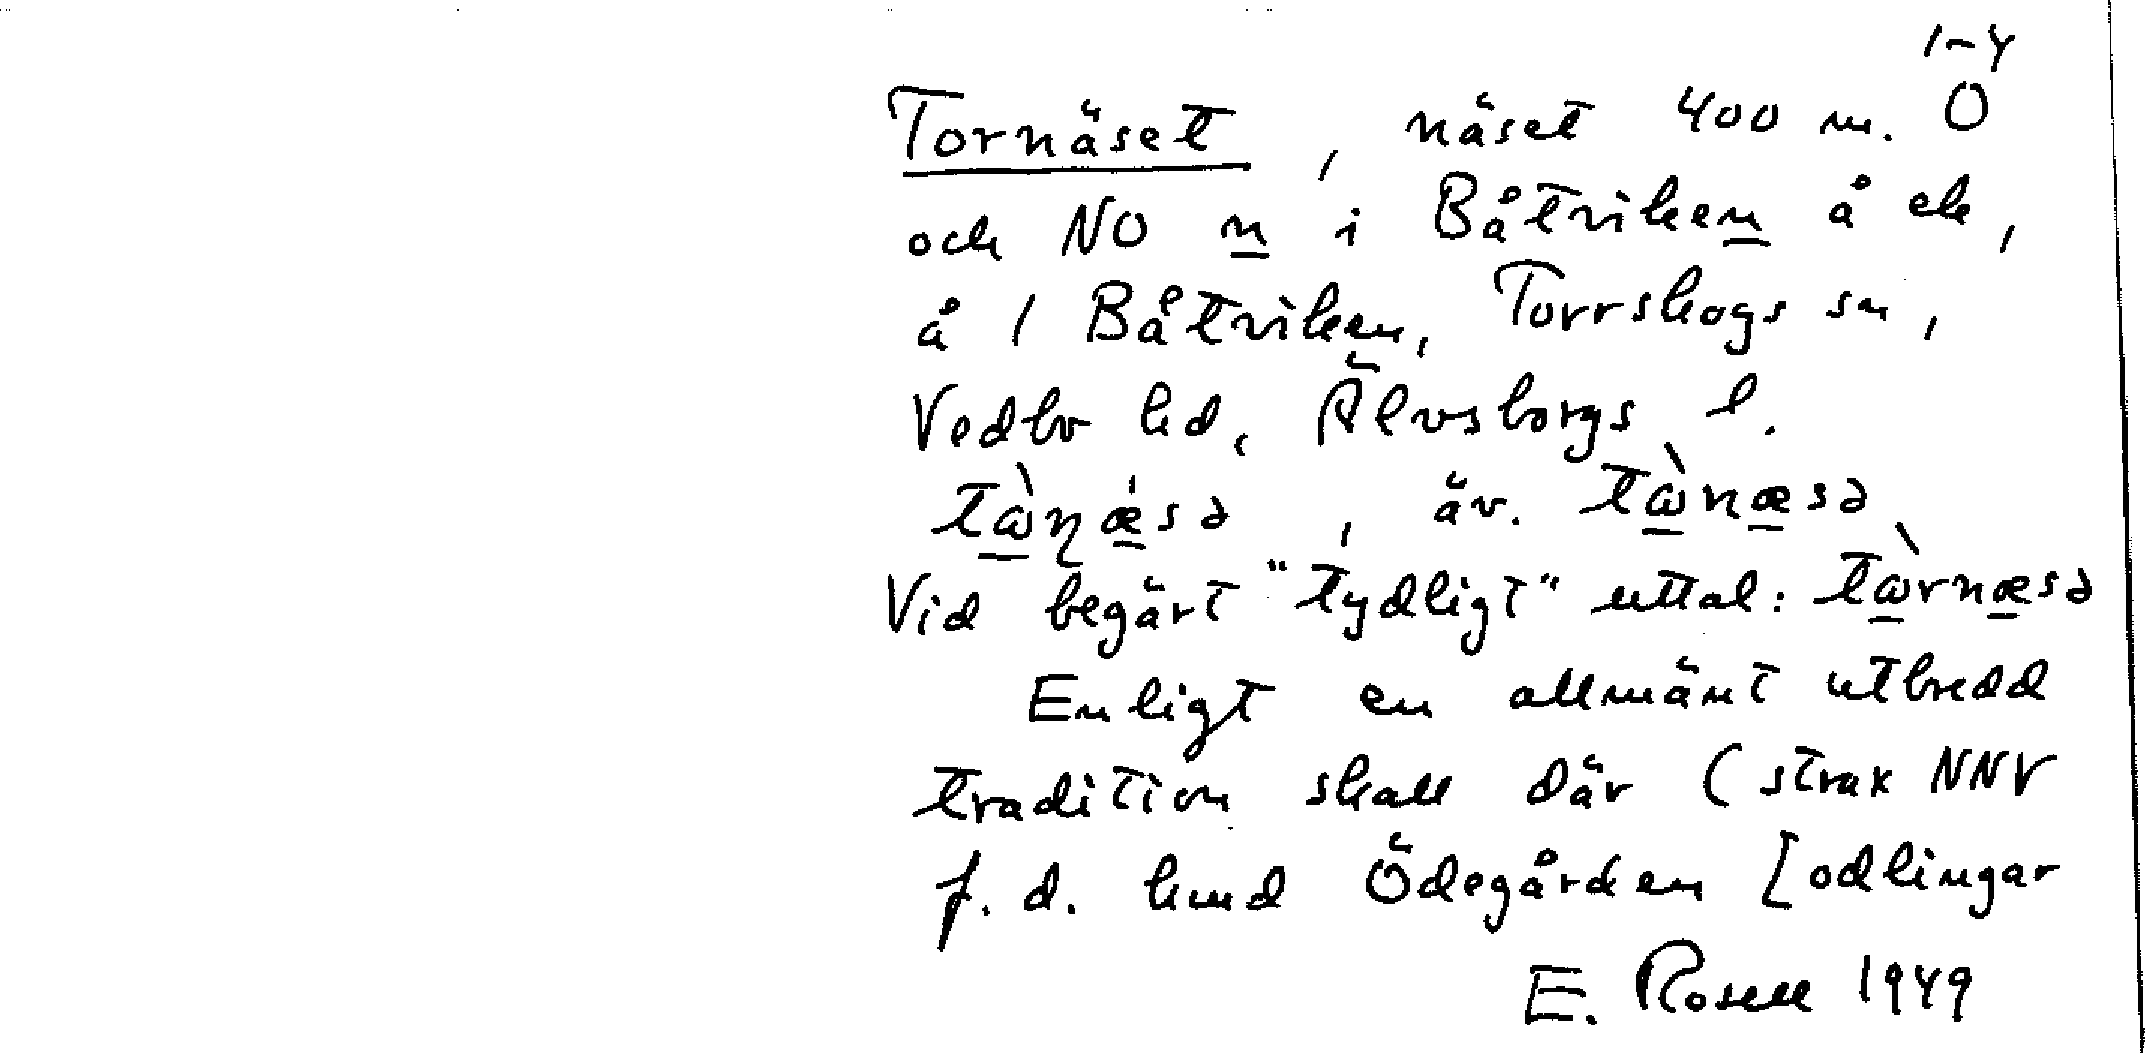 1-4
Tornäset, näset 400 m. O
och NO n i Båtviken å ek,
å 1 Båtviken, Torrskogs sn,
Vedbo hd, Älvsborgs l.
tɷ̀ɳǽsə, äv. tɷ̀næsə
Vid begärt "tydligt" uttal: tɷ̀rnæsə
Enligt en allmänt utbredd
tradition skall där (strax NNV
f. d. hmd Ödegården [odlingar
E. Rosell 1949